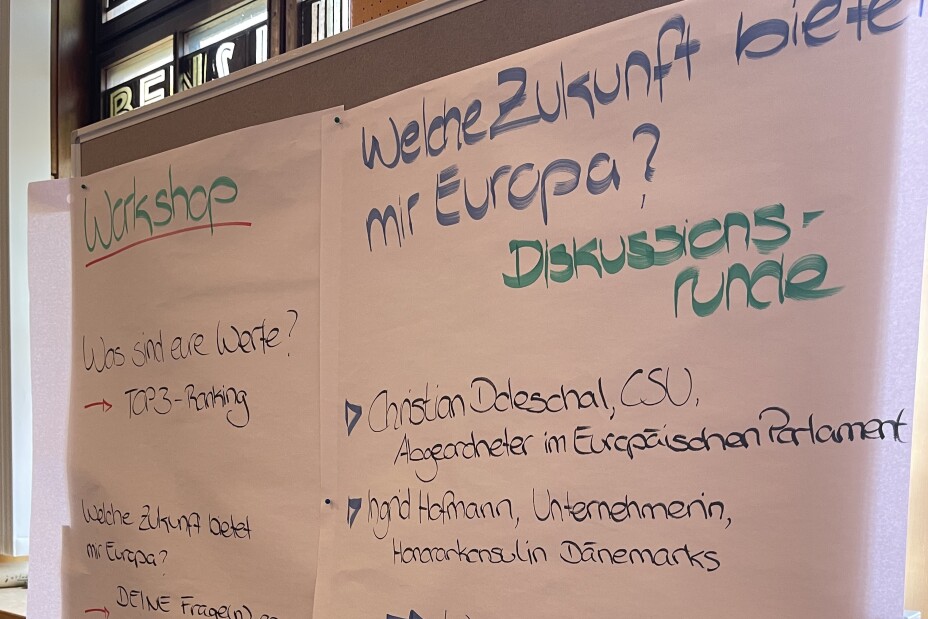 BENS
Workshop
Was sind eure Werte?
TOP3-Ranking
Welche Zukunft bietet
mir Europa?
DEINE Frage(n)
Welche Zukunft bietet
mir Europa?
Diskussions-
runde
Christian Doleschal, CSU,
Abgeordneter im Europäischen Parlament
Ingrid Hofmann, Unternehmerin,
Honorarkonsulin Dänemarks